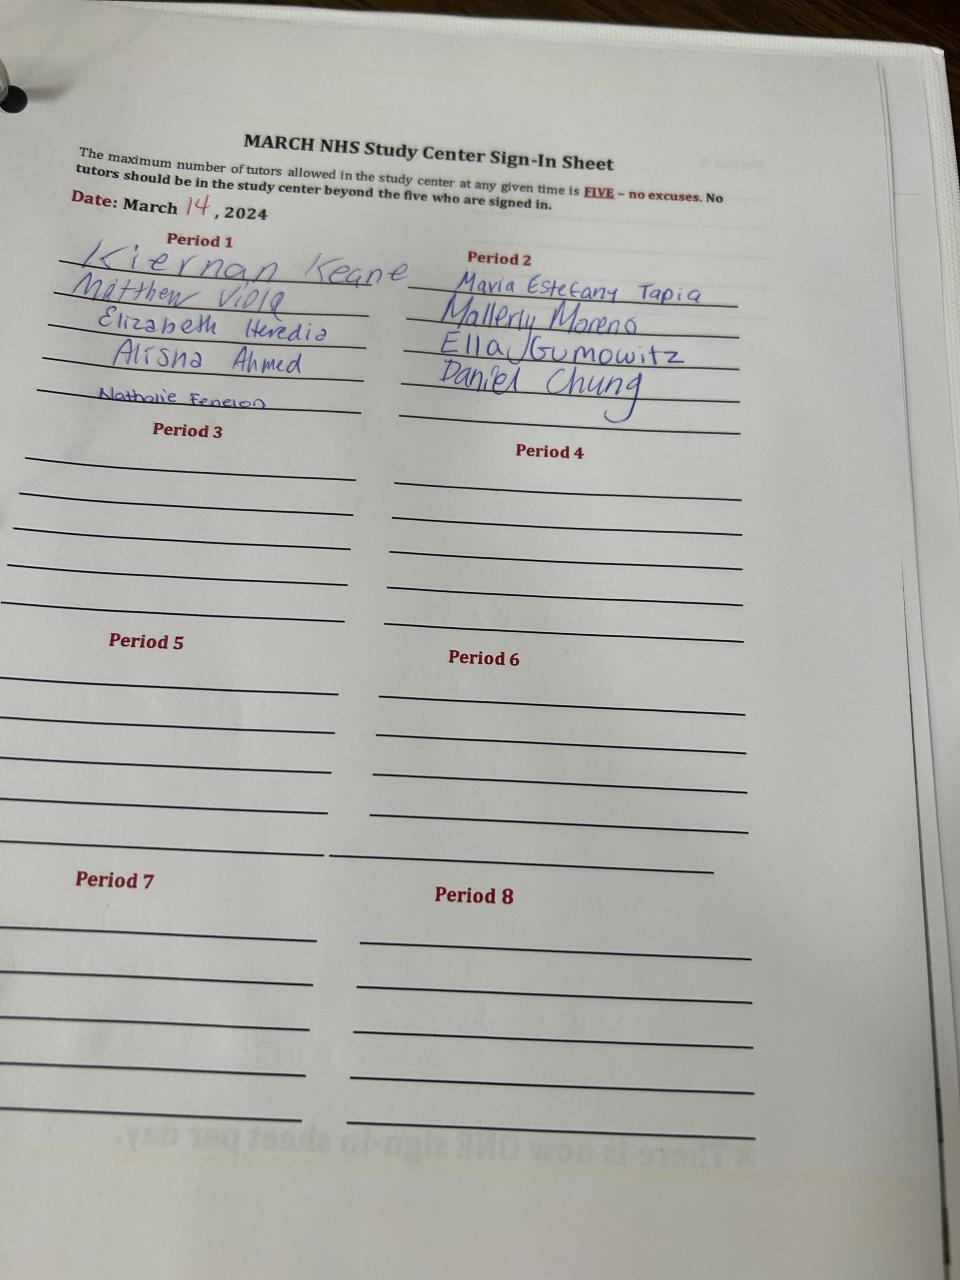 MARCH NHS Study Center Sign-In Sheet
The maximum number of tutors allowed in the study center at any given time is FIVE – no excuses. No
tutors should be in the study center beyond the five who are signed in.
Date: March 14, 2024
Period 1
Kiernan Keane
Matthew Viola
Elizabeth Heredia
Alisha Ahmed
Nathalie Fenelon
Period 2
Maria Estefany Tapia
Mallerly Moreno
Ella Gumowitz
Daniel Chung
Period 3
Period 4
Period 5
Period 6
Period 7
Period 8
* There is now ONE sign-in sheet per day.